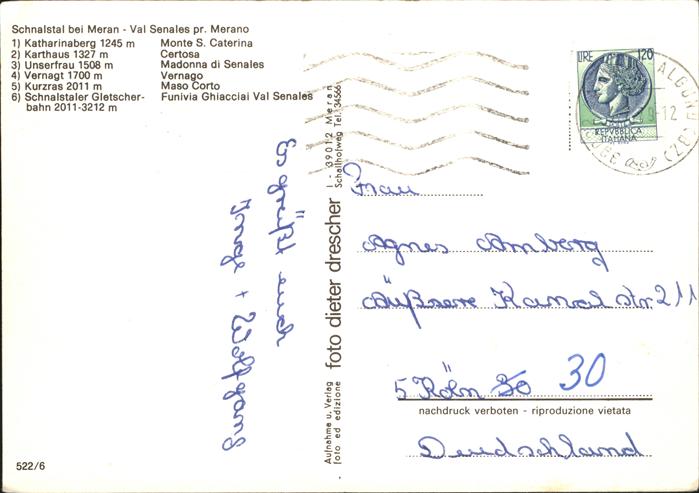 Schnalstal bei Meran - Val Senales pr. Merano
1) Katharinaberg 1245 m Monte S. Caterina
2) Karthaus 1327 m Certosa
3) Unserfrau 1508 m Madonna di Senales
4) Vernagt 1700 m Vernago
5) Kurzras 2011 m Maso Corto
6) Schnalstaler Gletscher- Funivia Ghiacciai Val Senales
bahn 2011-3212 m
Es grüßt euch
Inge + Wolfgang
522/6
Aufnahme u. Verlag
foto ed edizione
foto dieter drescher
I - 39012 Meran
Schallhofweg Tel. 34566
LIRE 120
REPVBBLICA
ITALIANA
Frau
Agnes Amberg
Äußere Kanalstr 211
5 Köln 30 30
nachdruck verboten - riproduzione vietata
Deudschland